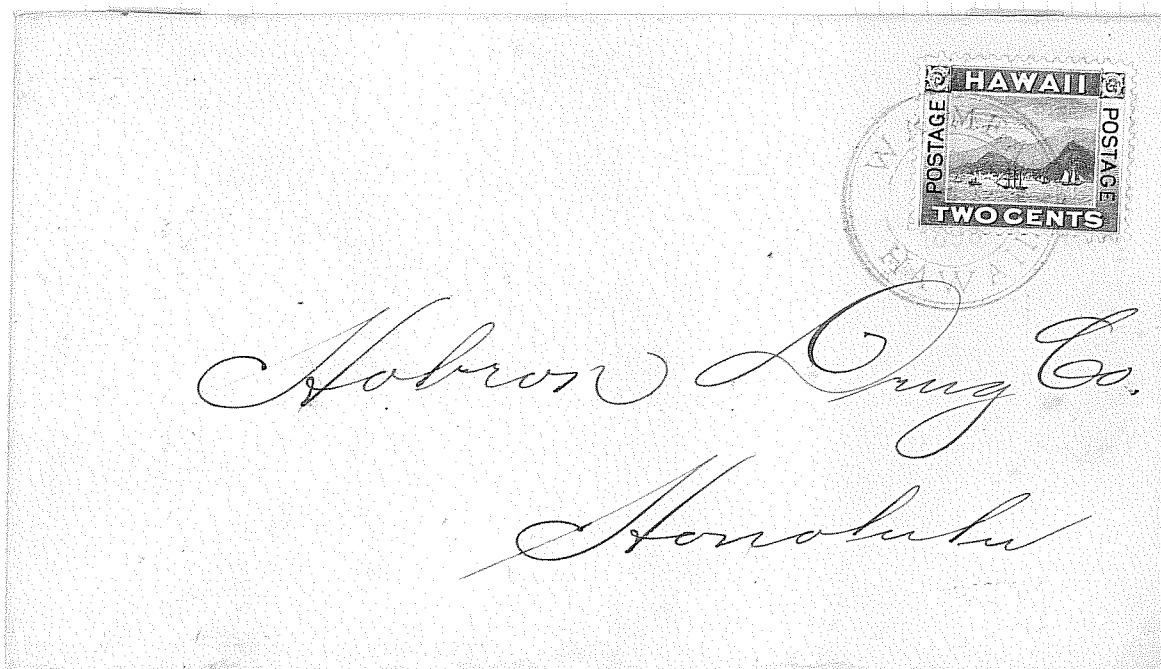 HAWAII
POSTAGE
POSTAGE
TWO CENTS
HAWAII
Hobron Drug Co.
Honolulu